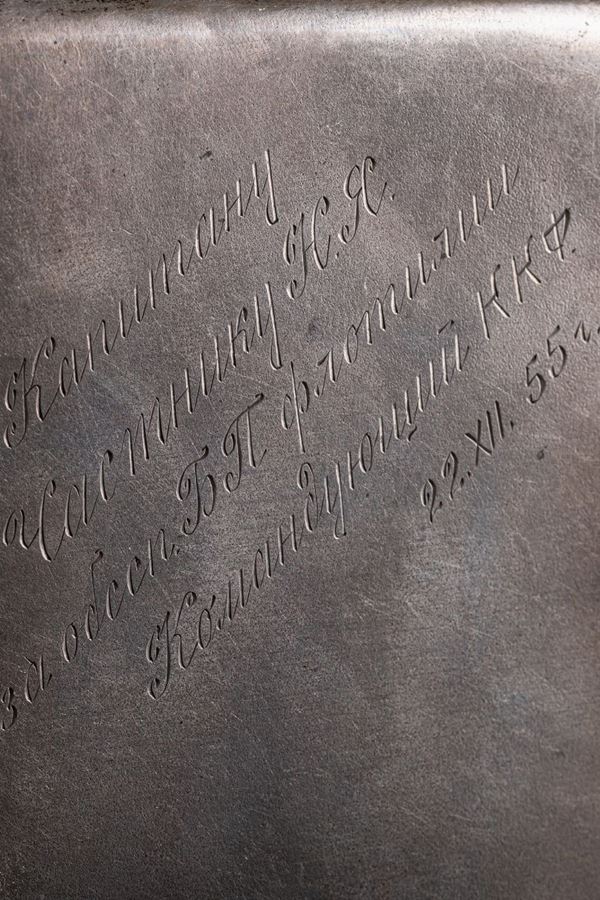 Капитану
Частнику Н.Я.
за обесп. БП флотилии
Командующий ККФ.
22.XII.55г.